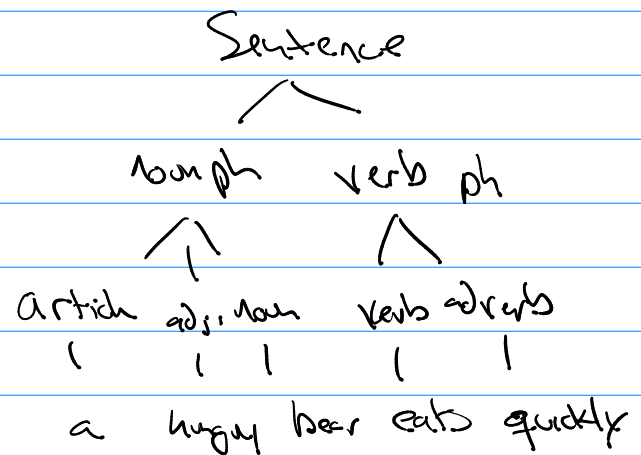 Sentence
noun ph verb ph
article adj. noun verb adverb
a hungry bear eats quickly